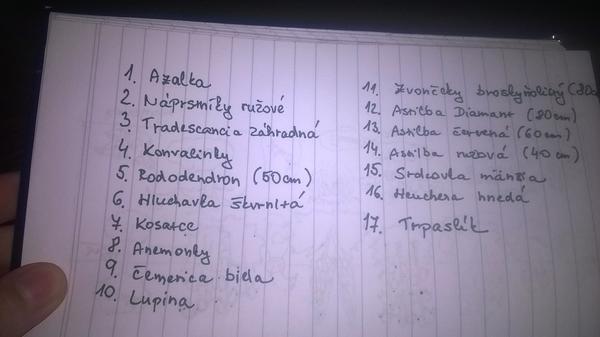 1. Azalka
2. Náprsníky ružové
3. Tradescancia záhradná
4. Konvalinky
5. Rododendron (50cm)
6. Hluchavka škvrnitá
7. Kosatce
8. Anemonky
9. Čemerica biela
10. Lupina
11. Zvončeky broskyňolistý
12. Astilba Diamant (80cm)
13. Astilba červená (60cm)
14. Astilba ružová (40cm)
15. Srdcovka
16. Heuchera hnedá
17. Trpaslík